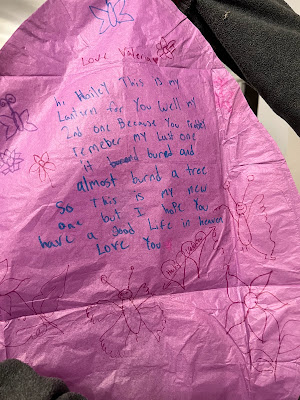 Love Valeria
hi Hailey This is my
Lantern for You well my
2nd one Because You
remeber my last one
it burnd and
almost burnd a tree
So This is my new
one but I hope You
have a good Life in heaven
Love You